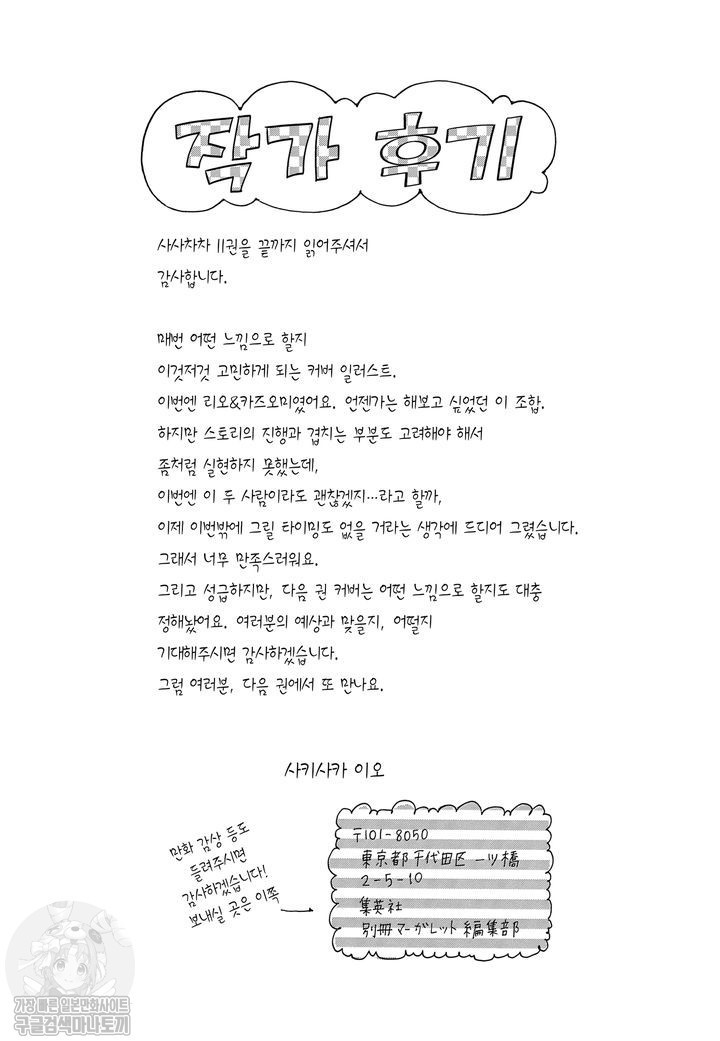 작가 후기
사사차차 11권을 끝까지 읽어주셔서
감사합니다.
매번 어떤 느낌으로 할지
이것저것 고민하게 되는 커버 일러스트.
이번엔 리오&카즈오미였어요. 언젠가는 해보고 싶었던 이 조합.
하지만 스토리의 진행과 겹치는 부분도 고려해야 해서
좀처럼 실현하지 못했는데,
이번엔 이 두 사람이라도 괜찮겠지…라고 할까,
이제 이번밖에 그릴 타이밍도 없을 거라는 생각에 드디어 그렸습니다.
그래서 너무 만족스러워요.
그리고 성급하지만, 다음 권 커버는 어떤 느낌으로 할지도 대충
정해놨어요. 여러분의 예상과 맞을지, 어떨지
기대해주시면 감사하겠습니다.
그럼 여러분, 다음 권에서 또 만나요.
사키사카 이오
만화 감상 등도
들려주시면
감사하겠습니다!
보내실 곳은 이쪽
〒101-8050
東京都千代田区一ツ橋
2-5-10
集英社
別冊マーガレット編集部
가장 빠른 일본만화사이트
구글검색마나토끼